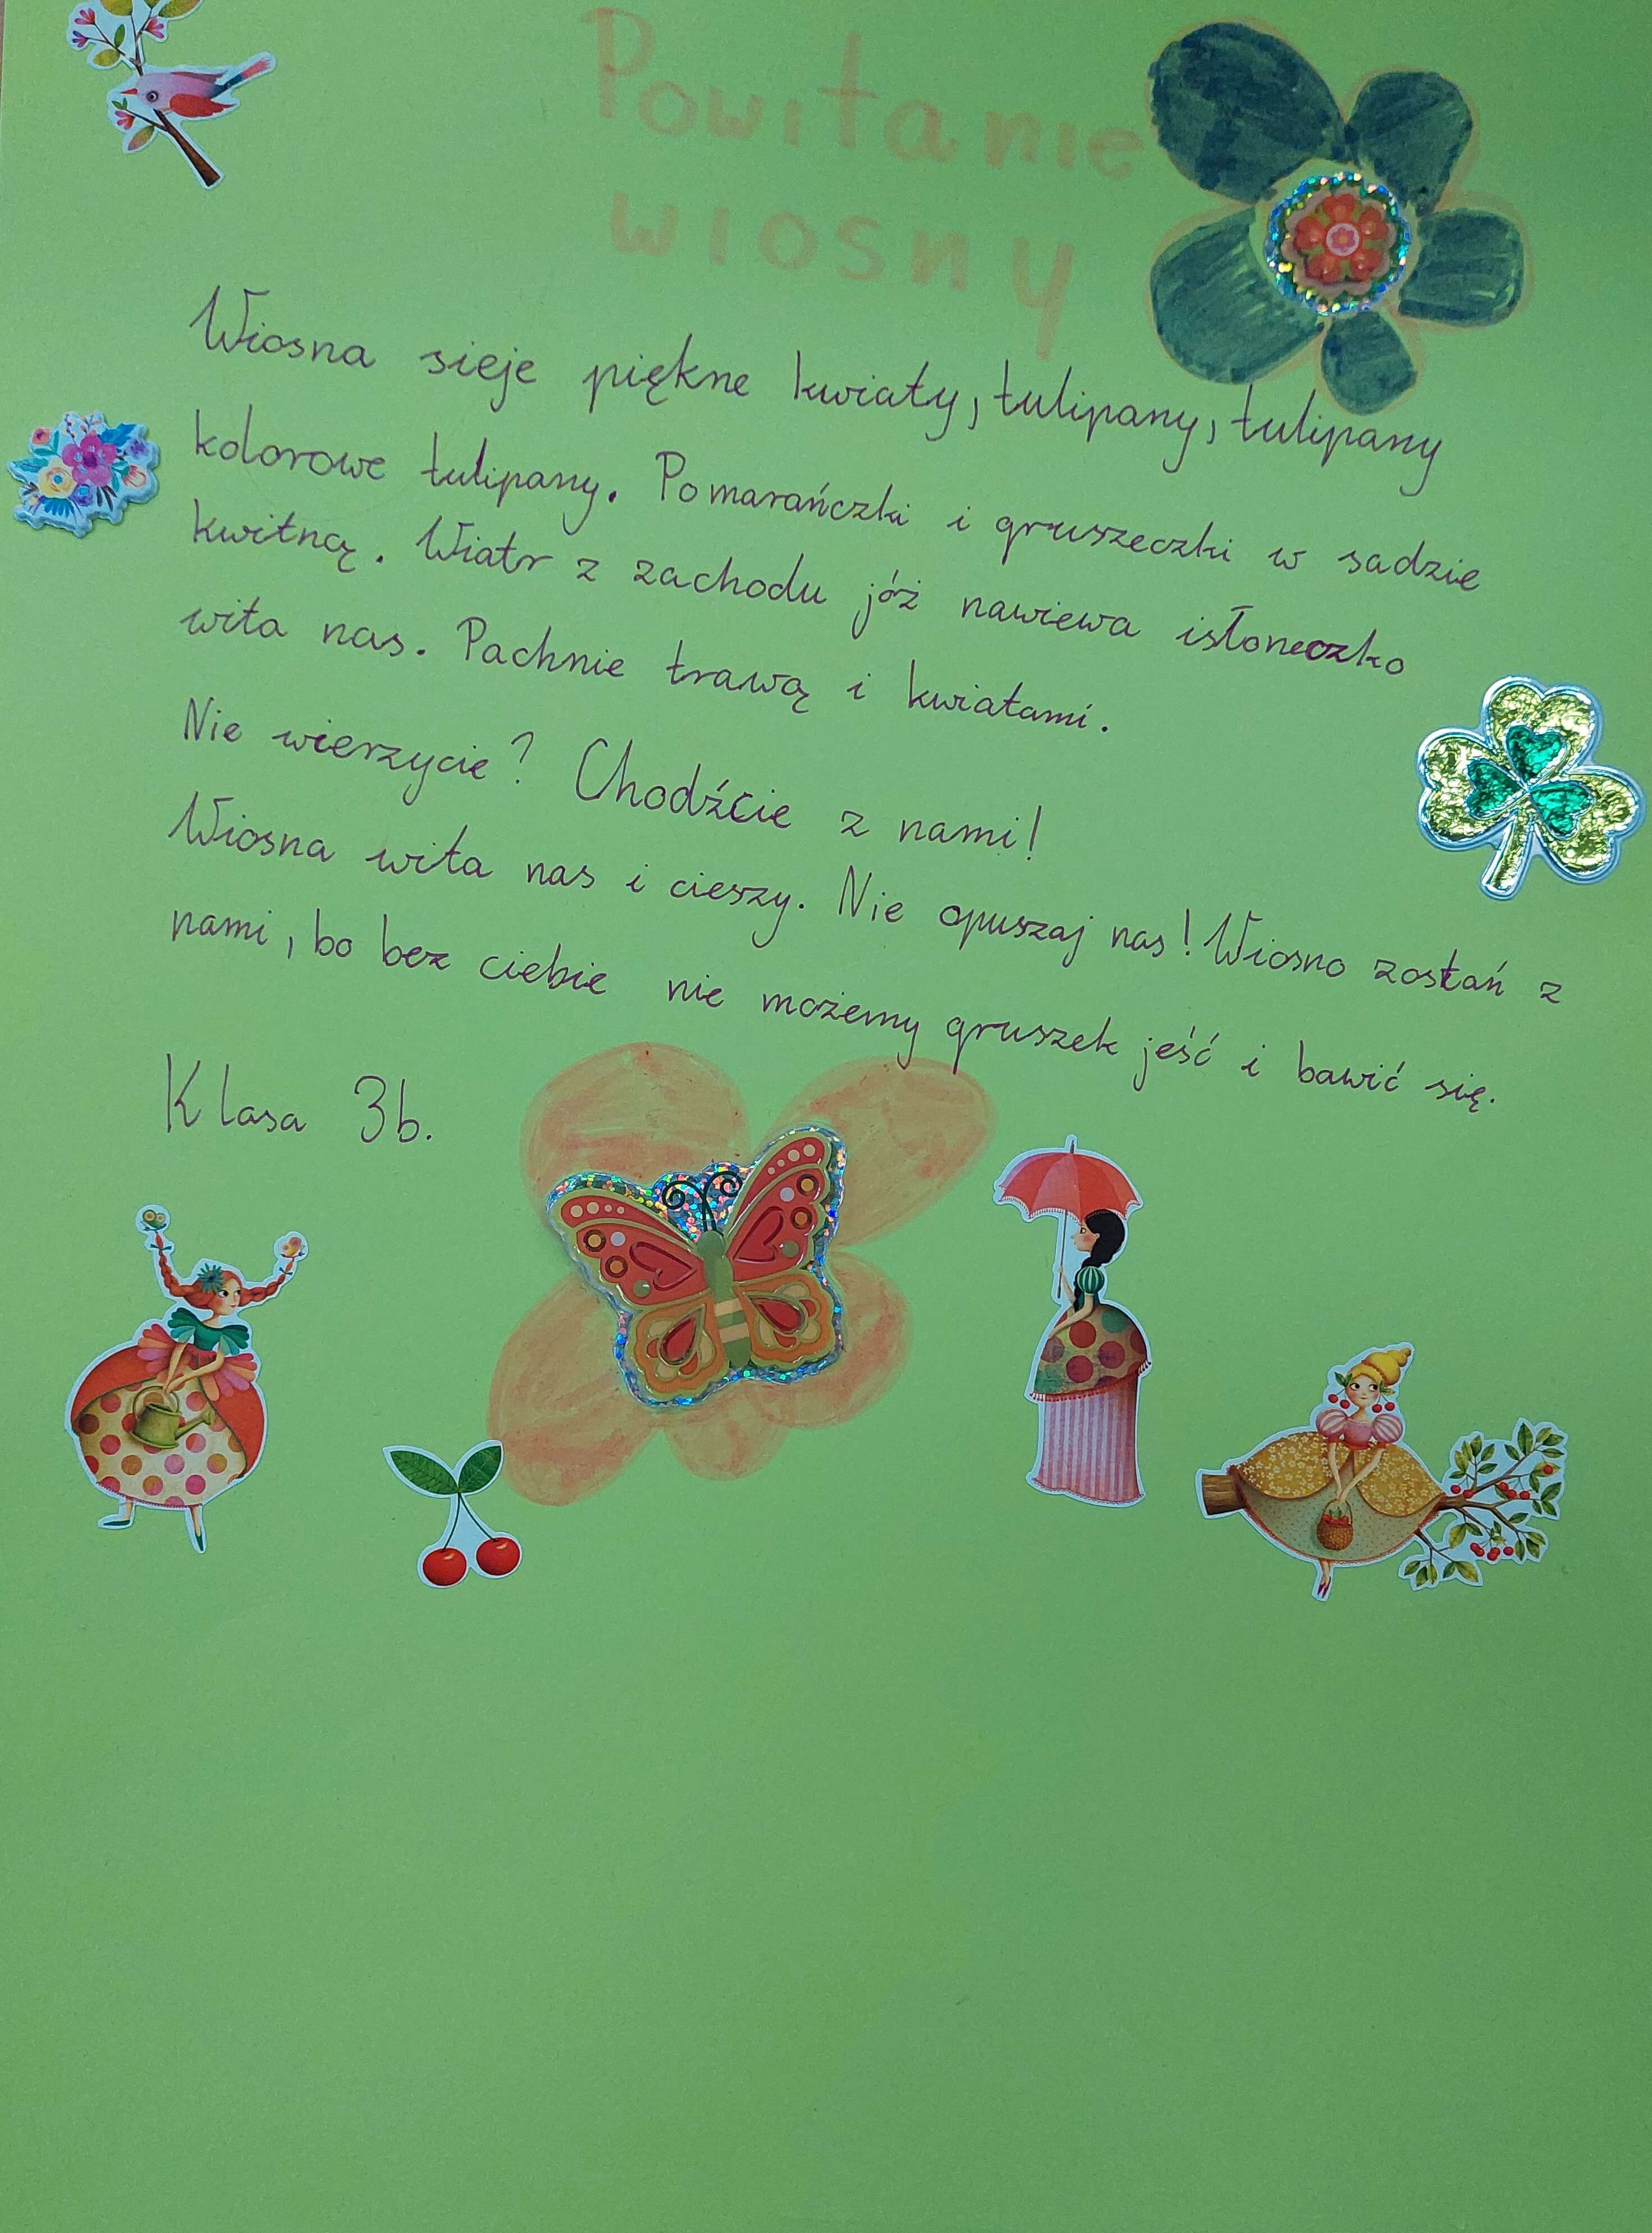 Powitanie
wiosny
Wiosna sieje piękne kwiaty, tulipany, tulipany
kolorowe tulipany. Pomarańczki i gruszeczki w sadzie
kwitną. Wiatr z zachodu jóż nawiewa isłoneczko
wita nas. Pachnie trawą i kwiatami.
Nie wierzycie? Chodźcie z nami!
Wiosna wita nas i cieszy. Nie opuszaj nas! Wiosno zostań z
nami, bo bez ciebie nie możemy gruszek jeść i bawić się.
Klasa 3b.